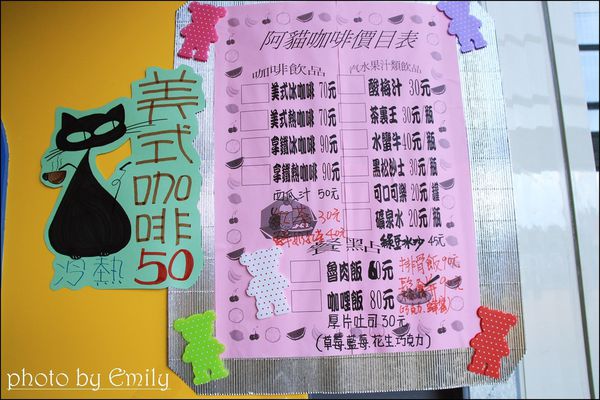 美式咖啡
冷熱50
阿貓咖啡價目表
咖啡飲品
美式冰咖啡 70元
美式熱咖啡 70元
拿鐵熱咖啡 90元
拿鐵熱咖啡 90元
西瓜汁 50元
紅茶 30元
40元
汽水果汁類飲品
酸梅汁 30元
茶裏王 30元/瓶
水蠻牛40元/瓶
黑松沙士 30元/瓶
可口可樂 20元/罐
礦泉水 20元/瓶
綠豆冰沙 45元
魯肉飯 60元
咖哩飯 80元
厚片吐司 30元
(草莓.藍莓.花生.巧克力)
排骨飯 90元
photo by Emily